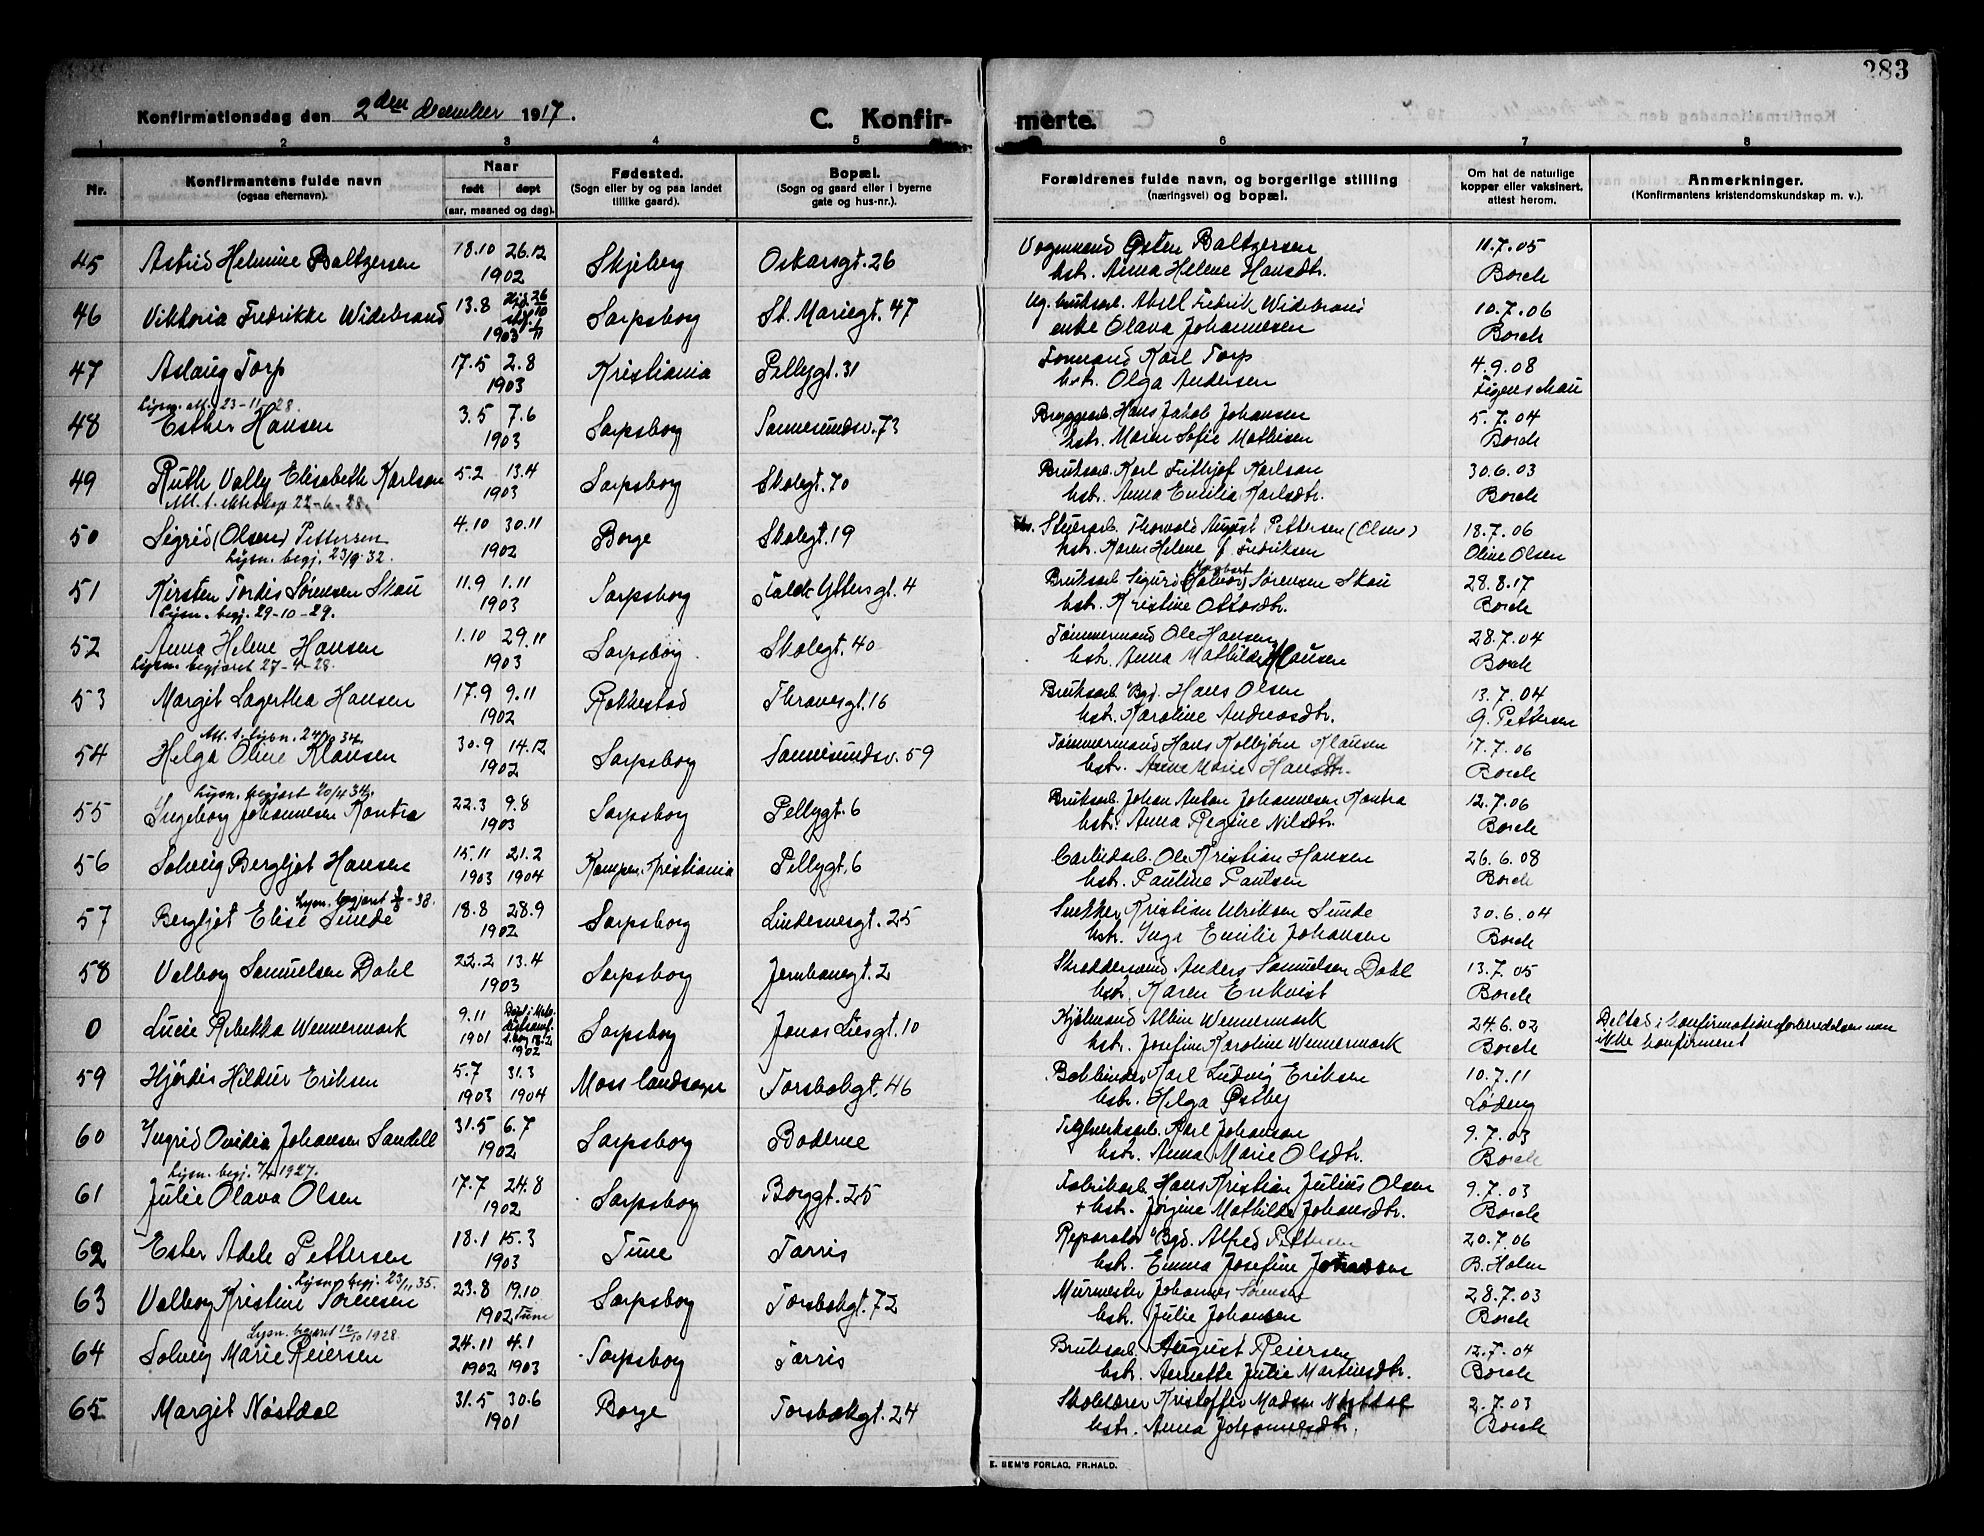 283
Konfirmationsdag den 2den december 1917.
C. Konfir-
merte.
1 2 3 4 5 6 7 8
Nr.
Konfirmantens fulde navn
(ogsaa efternavn).
Naar
født døpt
(aar, maaned og dag).
Fødested.
(Sogn eller by og paa landet
tillike gaard).
Bopæl.
(Sogn og gaard eller i byerne
gate og hus-nr.).
Forældrenes fulde navn, og borgerlige stilling
(næringsvei) og bopæl.
Om hat de naturlige
kopper eller vaksinert,
attest herom.
Anmerkninger.
(Konfirmantens kristendomskundskap m. v.).
45 Astrid Helmine Baltzersen 18.10 26.12 1902 Skjeberg Oskarsgt. 26
Vognmand Østen Baltzersen 11.7.05
hstr. Anna Helene Hansdtr. Borch
46 Viktoria Fredrikke Widebrand 13.8 1903 Sarpsborg St. Mariegt. 47
Fredrik Widebrand 10.7.06
enke Olava Johannesen Borch
47 Aslaug Torp 17.5 2.8 1903 Kristiania Pellygt. 31
Formand Karl Torp 4.9.08
hstr. Olga Andersen Figenschau
Lysn. att. 23-11-28.
48 Esther Hansen 3.5 7.6 1903 Sarpsborg Sannesundsv. 73
Bryggearb. Hans Jakob Johansen 5.7.04
hstr. Maren Sofie Mathisen Borch
49 Ruth Vally Elisabeth Karlsen 5.2 13.4 1903 Sarpsborg Skolegt. 70
Att. t. ekteskap 22-6-28.
Bruksarb. Karl Frithjof Karlsen 30.6.03
hstr. Anna Emilia Karlsdtr. Borch
50 Sigrid (Olsen) Pettersen 4.10 30.11 1902 Borge Skolegt. 19
Lysn. begj. 23/9 32.
Thorvald August Pettersen (Olsen) 18.7.06
hstr. Karen Helene F. Fredriksen Oline Olsen
51 Kirsten Tordis Sørensen Skau 11.9 1.11 1903 Sarpsborg Falck Yttersgt. 4
Lysn. begj. 29-10-29.
Bruksarb. Sigurd Sørensen Skau 28.8.17
hstr. Kristine Ottosdtr. Borch
52 Anna Helene Hansen 1.10 29.11 1903 Sarpsborg Skolegt. 40
Lysn. begjæret 27-4-28.
Tømmermand Ole Hansen 28.7.04
hstr. Anna Mathilde Hansen Borch
53 Margit Lagertha Hansen 17.9 9.11 1902 Rakkestad Thranesgt. 16
Bruksarb. Bgd. Hans Olsen 13.7.04
hstr. Karoline Andreasdtr. G. Pettersen
Att. t. lysn. 24/10 34.
54 Helga Oline Klausen 30.9 14.12 1902 Sarpsborg Sannesundsv. 59
Tømmermand Hans Kolbjørn Klausen 17.7.06
hstr. Anne Marie Hansdtr. Borch
Lysn. begjært 20/4 34.
55 Ingeborg Johannesen Kontra 22.3 9.8 1903 Sarpsborg Pellygt. 6
Bruksarb. Johan Anton Johannesen Kontra 12.7.06
hstr. Anna Regine Nilsdtr. Borch
56 Solveig Bergljot Hansen 15.11 1903 21.2 1904 Kampen, Kristiania Pellygt. 6
Carbidarb. Ole Kristian Hansen 26.6.08
hstr. Pauline Paulsen Borch
57 Bergljot Elise Sunde 18.8 28.9 1902 Sarpsborg Lindesnesgt. 25
Snekker Kristian Ulriksen Sunde 30.6.04
hstr. Inga Emilie Johansen Borch
58 Valborg Samuelsen Dahl 22.2 13.4 1903 Sarpsborg Jernbanegt. 2
Skreddersvend Anders Samuelsen Dahl 13.7.05
hstr. Karen Enkvist Borch
0 Lucie Rebekka Wennermark 9.11 1901 18.2 1902 Sarpsborg Jonas Liesgt. 10
Kjølmand Albin Wennermark 24.6.02
hstr. Josefine Karoline Wennermark Borch
Deltad i konfirmationsforberedelsen men
ikke konfirmeret
59 Hjørdis Hildur Eriksen 5.7 1903 31.3 1904 Moss landsogn Torsbækgt. 46
Bokbinder Karl Ludvig Eriksen 10.7.11
hstr. Helga Østby Løding
60 Ingrid Ovidia Johansen Sandell 31.5 6.7 1902 Sarpsborg Boderne
Teglverksarb. Karl Johansen 9.7.03
hstr. Anna Marie Olsdtr. Borch
Lysn. begj. 7/4 1927.
61 Julie Olava Olsen 17.7 24.8 1902 Sarpsborg Borggt. 25
Fabrikarb. Hans Kristian Julius Olsen 9.7.03
+ hstr. Jørgine Mathilde Johansdtr. Borch
62 Ester Adele Pettersen 18.1 15.3 1903 Tune Tarris
Reparatør Bgd. Alfred Pettersen 20.7.06
hstr. Emma Josefine Johansen B. Holm
Lysn. begj. 23/11 35.
63 Valborg Kristine Sørensen 23.8 19.10 1902 Tune Sarpsborg Torsbækgt. 72
Murmester Johannes Sørensen 28.7.03
hstr. Julie Johansen Borch
Lysn. begjæret 12/10 1928.
64 Solveig Marie Reiersen 24.11 1902 4.1 1903 Sarpsborg Tarris
Bruksarb. August Reiersen 12.7.04
hstr. Annette Julie Martinsdtr. Borch
65 Margit Nøstdal 31.5 30.6 1901 Borge Torsbækgt. 24
Skolelærer Kristoffer Madsen Nøstdal 2.7.03
hstr. Anna Johannesdtr. Borch
E. SEM'S FORLAG, FR.HALD.